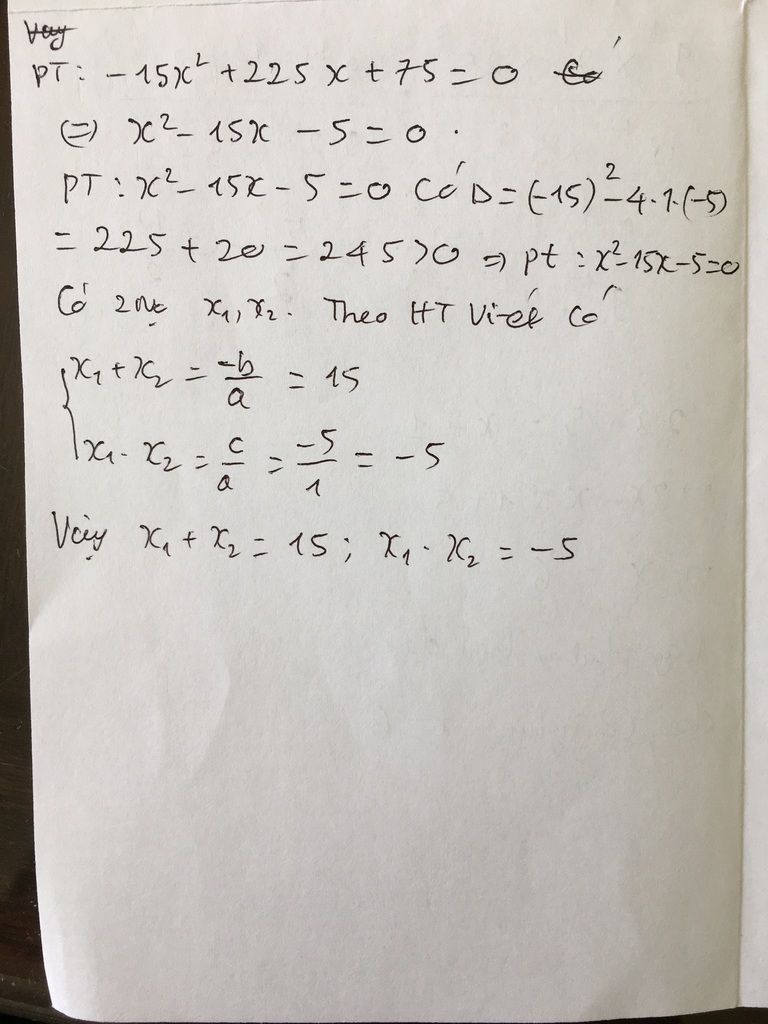 Vậy
PT: -15x² + 225x + 75 = 0 Có
(=) x² - 15x - 5 = 0.
PT: x² - 15x - 5 = 0 Có Δ = (-15)² - 4.1.(-5)
= 225 + 20 = 245 > 0 => pt: x² - 15x - 5 = 0
Có 2 no x₁, x₂. Theo HT Vi-ét có
{ x₁ + x₂ = -b/a = 15
x₁ . x₂ = c/a = -5/1 = -5
Vậy x₁ + x₂ = 15 ; x₁ . x₂ = -5